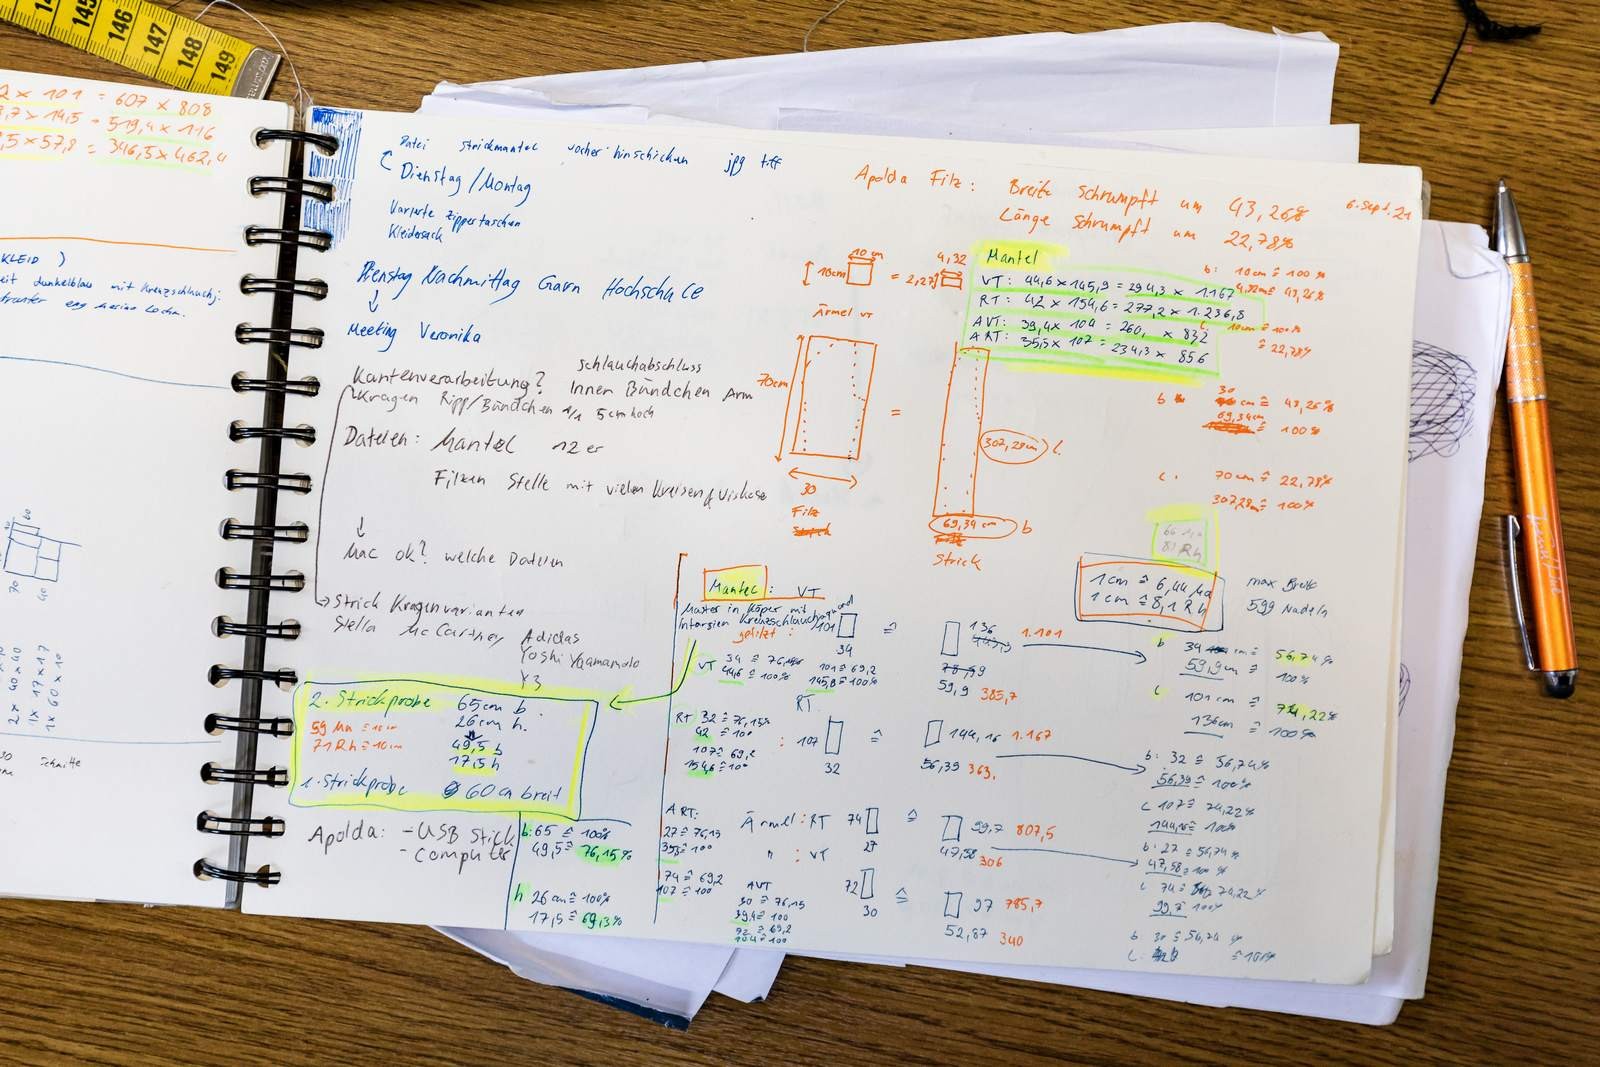 145
146
147
148
149
2 x 101 = 607 x 808
,7 x 14,5 = 519,4 x 116
,5 x 57,8 = 346,5 x 462,4
KLEID )
eit dunkelblau mit Kreuzschlauchj.
60
70
40
2 x 40 x 40
1 x 17 x 17
1 x 60 x 10
Schnitte
Datei strickmantel vorher hinschicken jpg tiff
Dienstag / Montag
Variante Zippertaschen
Kleidersack
Dienstag Nachmittag Garn Hochschule
Meeting Veronika
Kantenverarbeitung? Schlauchabschluss
Innen Bündchen Arm
Kragen Ripp/Bündchen 1/1 5cm hoch
Dateien: Mantel 12er
Filzen Stelle mit vielen Kreisen & Viskose
Mac ok? welche Dateien
Strick Kragenvarianten
Stella McCartney Adidas
Yoshi Yaamamoto
Y3
2. Strickprobe 65cm b.
26cm h.
59 Ma ≙ 10cm
71 Rh ≙ 10cm
49,5 b
17,5 h
1. Strickprobe 60cm breit
Apolda: - USB Stick
- Computer
b: 65 ≙ 100%
49,5 ≙ 76,15%
h 26cm ≙ 100%
17,5 ≙ 69,3%
Apolda Filz: Breite schrumpft um 43,26%
Länge schrumpft um 22,78%
6. Sept. 21
10cm
10cm = 2,27
4,32
Mantel
VT: 44,6 x 145,9 = 294,3 x 1.167
RT: 42 x 154,6 = 277,2 x 1.236,8
AVT: 39,4 x 104 = 260, x 832
ART: 35,5 x 107 = 234,3 x 856
b: 10cm ≙ 100%
4,32cm ≙ 43,26%
l. 10cm ≙ 100%
≙ 22,78%
Ärmel VT
70cm
30
Filz
=
307,28cm l.
69,34 cm b
Strick
b 30 cm ≙ 43,26%
69,34cm ≙ 100%
l. 70cm ≙ 22,78%
307,28cm ≙ 100%
81 Rh
1cm ≙ 6,44 Ma
1cm ≙ 8,1 Rh
max Breite
599 Nadeln
Mantel: VT
Muster in Köper mit
Intarsien Kreuzschlauchjaquard
gefilzt: 101
34
≙
136
59,9 385,7
1.101
VT 34 ≙ 76,15%
44,6 ≙ 100%
101 ≙ 69,2
145,8 ≙ 100%
b 34 cm ≙ 56,74%
59,9cm ≙ 100%
l 101cm ≙ 74,22%
136cm ≙ 100%
RT
RT 32 ≙ 76,15%
42 ≙ 100
107 ≙ 69,2
154,6 ≙ 100
: 107
32
≙
144,16 1.167
56,39 363,
b: 32 ≙ 56,74%
56,39 ≙ 100%
l 107 ≙ 74,22%
144,16 ≙ 100%
ART:
27 ≙ 76,15
35,5 ≙ 100
74 ≙ 69,2
107 ≙ 100
Ärmel: RT 74
27
≙
99,7 807,5
47,58 306
b: 27 ≙ 56,74%
47,58 ≙ 100%
l 74 ≙ 74,22%
99,7 100%
" : VT 72
30
≙
97 785,7
52,87 340
AVT
30 ≙ 76,15
39,4 ≙ 100
72 ≙ 69,2
104 ≙ 100
b: 30 ≙ 56,74%
l:
≙ 100%